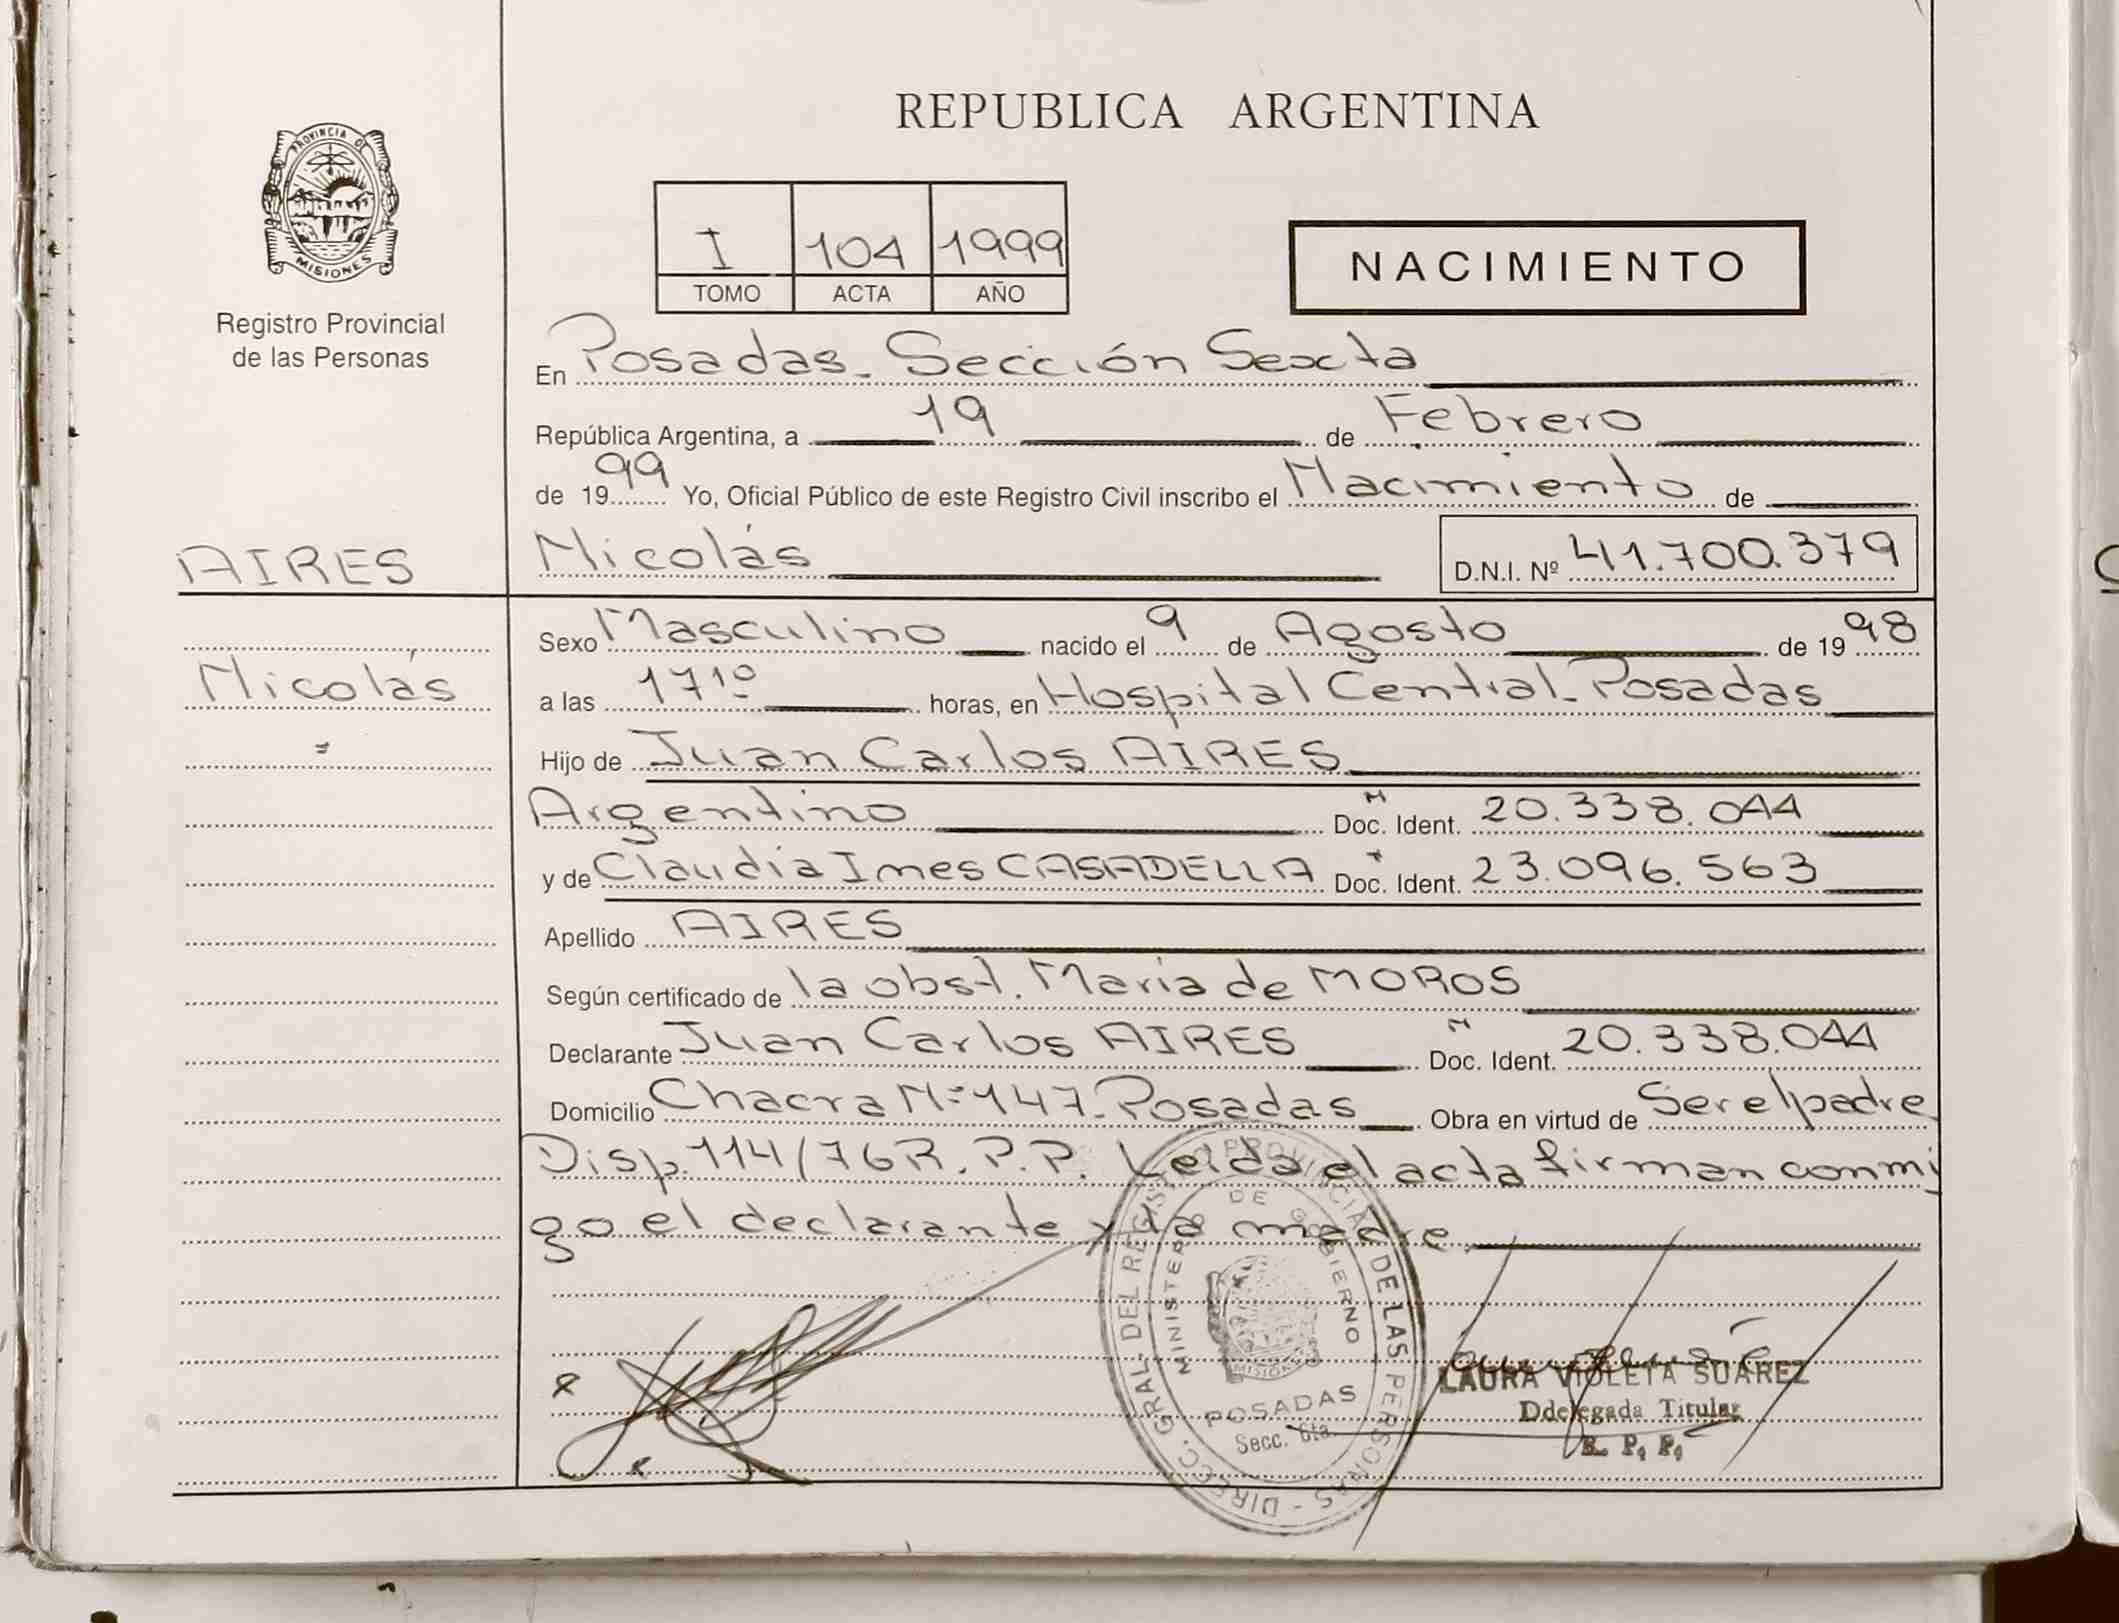 REPUBLICA ARGENTINA
PROVINCIA DE
MISIONES
Registro Provincial
de las Personas
I 104 1999
TOMO ACTA AÑO
NACIMIENTO
En Posadas - Sección Sexta
República Argentina, a 19 de Febrero
de 1999 Yo, Oficial Público de este Registro Civil inscribo el Nacimiento de
AIRES
Nicolás
Nicolás D.N.I. Nº 41.700.379
Sexo Masculino nacido el 9 de Agosto de 1998
a las 17 10 horas, en Hospital Central - Posadas
Hijo de Juan Carlos AIRES
Argentino Doc. Ident. 20.338.044
y de Claudia Ines CASADELLA Doc. Ident. 23.096.563
Apellido AIRES
Según certificado de la obst. María de MOROS
Declarante Juan Carlos AIRES Doc. Ident. 20.338.044
Domicilio Chacra Nº 147 - Posadas Obra en virtud de Ser el padre
Disp. 114/76 R.P.P. Leida el acta firman conmi
go el declarante y la madre
DIRECC. GRAL. DEL REGISTRO PROVINCIAL DE LAS PERSONAS -
MINISTERIO DE GOBIERNO
MISIONES
POSADAS
Secc. 6ta.
LAURA VIOLETA SUAREZ
Ddelegada Titular
R. P. P.